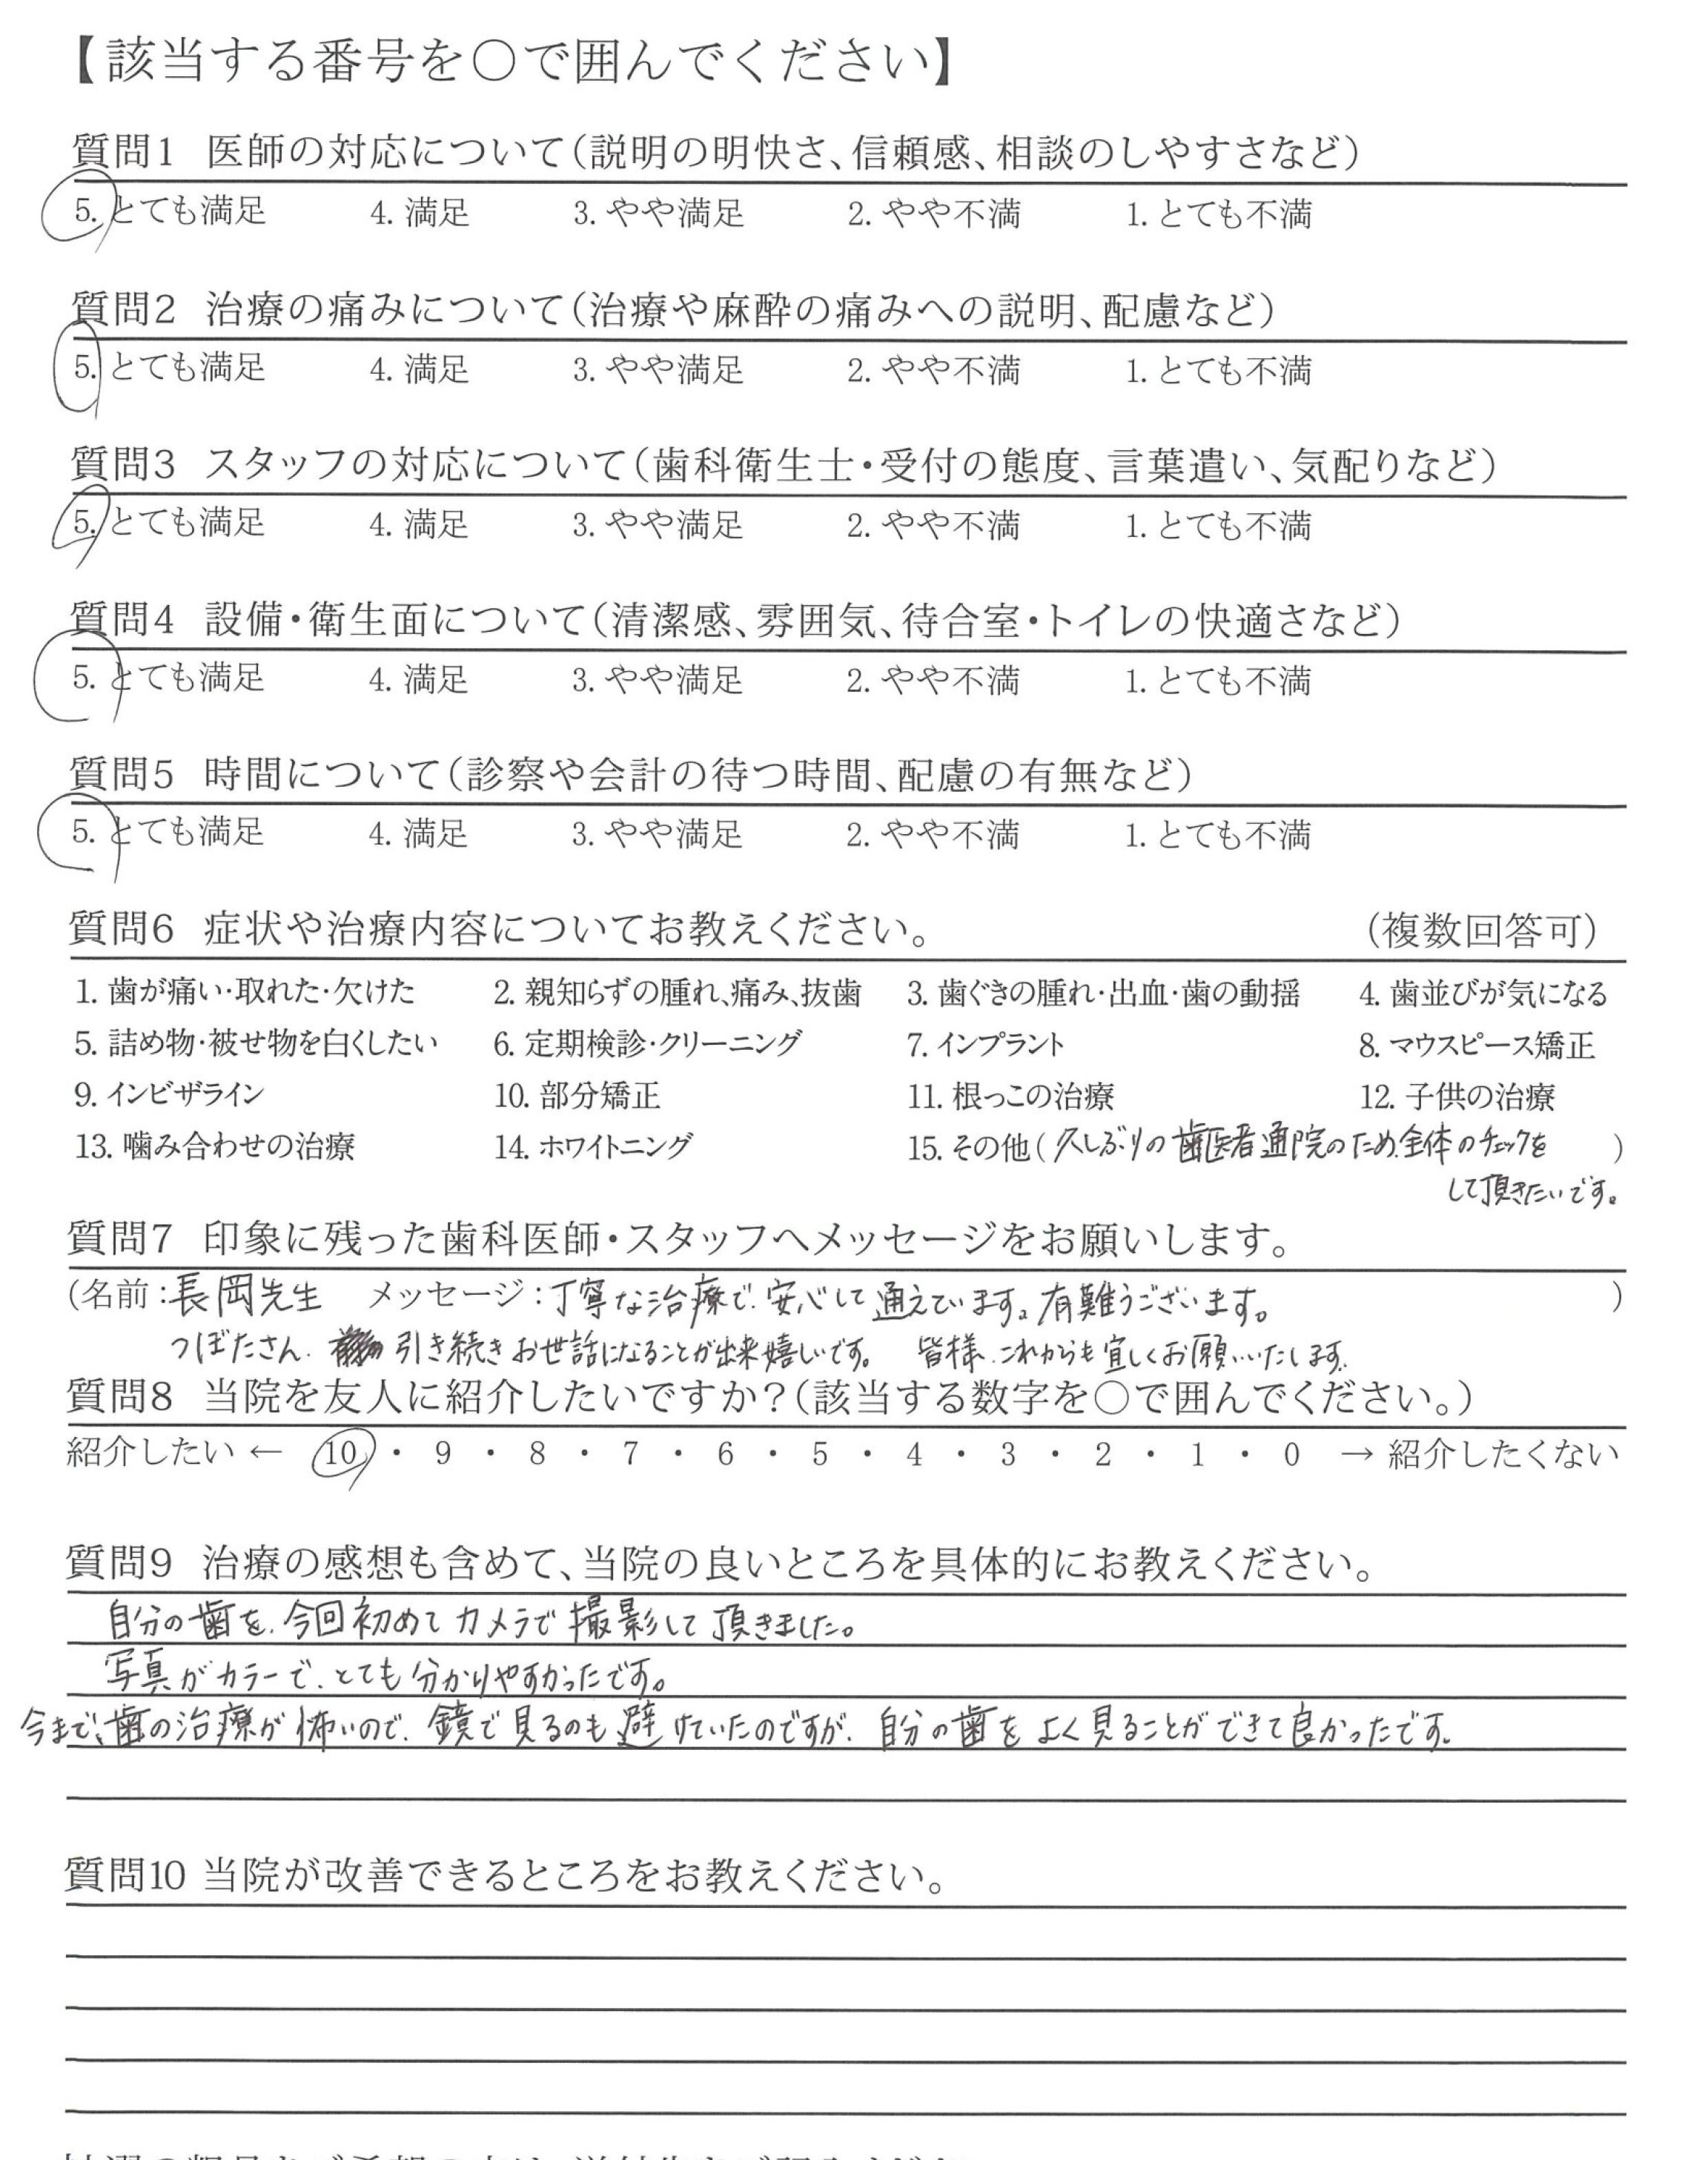 【該当する番号を〇で囲んでください】
質問1 医師の対応について(説明の明快さ、信頼感、相談のしやすさなど)
5. とても満足 4. 満足 3. やや満足 2. やや不満 1. とても不満
質問2 治療の痛みについて(治療や麻酔の痛みへの説明、配慮など)
5. とても満足 4. 満足 3. やや満足 2. やや不満 1. とても不満
質問3 スタッフの対応について(歯科衛生士・受付の態度、言葉遣い、気配りなど)
5. とても満足 4. 満足 3. やや満足 2. やや不満 1. とても不満
質問4 設備・衛生面について(清潔感、雰囲気、待合室・トイレの快適さなど)
5. とても満足 4. 満足 3. やや満足 2. やや不満 1. とても不満
質問5 時間について(診察や会計の待つ時間、配慮の有無など)
5. とても満足 4. 満足 3. やや満足 2. やや不満 1. とても不満
質問6 症状や治療内容についてお教えください。 (複数回答可)
1. 歯が痛い・取れた・欠けた 2. 親知らずの腫れ、痛み、抜歯 3. 歯ぐきの腫れ・出血・歯の動揺 4. 歯並びが気になる
5. 詰め物・被せ物を白くしたい 6. 定期検診・クリーニング 7. インプラント 8. マウスピース矯正
9. インビザライン 10. 部分矯正 11. 根っこの治療 12. 子供の治療
13. 噛み合わせの治療 14. ホワイトニング 15. その他(久しぶりの歯医者通院のため、全体のチェックを )
して頂きたいです。
質問7 印象に残った歯科医師・スタッフへメッセージをお願いします。
(名前:長岡先生 メッセージ:丁寧な治療で、安心して通えています。有難うございます。 )
つぼたさん、引き続きお世話になることが出来嬉しいです。 皆様、これからも宜しくお願いいたします。
質問8 当院を友人に紹介したいですか?(該当する数字を〇で囲んでください。)
紹介したい ← 10 ・ 9 ・ 8 ・ 7 ・ 6 ・ 5 ・ 4 ・ 3 ・ 2 ・ 1 ・ 0 → 紹介したくない
質問9 治療の感想も含めて、当院の良いところを具体的にお教えください。
自分の歯を、今回初めてカメラで撮影して頂きました。
写真がカラーで、とても分かりやすかったです。
今まで、歯の治療が怖いので、鏡で見るのも避けていたのですが、自分の歯をよく見ることができて良かったです。
質問10 当院が改善できるところをお教えください。